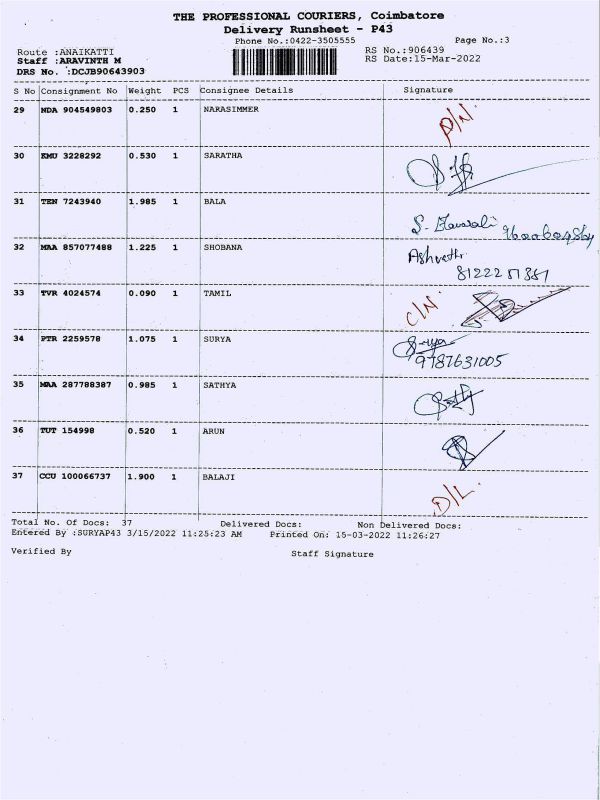 THE PROFESSIONAL COURIERS, Coimbatore
Delivery Runsheet - P43
Phone No.:0422-3505555 Page No.:3
Route :ANAIKATTI RS No.:906439
Staff :ARAVINTH M RS Date:15-Mar-2022
DRS No. :DCJB90643903
S No Consignment No Weight PCS Consignee Details Signature
29 NDA 904549803 0.250 1 NARASIMMER D/N.
30 KMU 3228292 0.530 1 SARATHA
31 TEN 7243940 1.985 1 BALA
32 MAA 857077488 1.225 1 SHOBANA
33 TVR 4024574 0.090 1 TAMIL C/N.
34 PTR 2259578 1.075 1 SURYA Surya
9787631005
35 MAA 287788387 0.985 1 SATHYA
36 TUT 154998 0.520 1 ARUN
37 CCU 100066737 1.900 1 BALAJI D/L.
Total No. Of Docs: 37 Delivered Docs: Non Delivered Docs:
Entered By :SURYAP43 3/15/2022 11:25:23 AM Printed On: 15-03-2022 11:26:27
Verified By Staff Signature